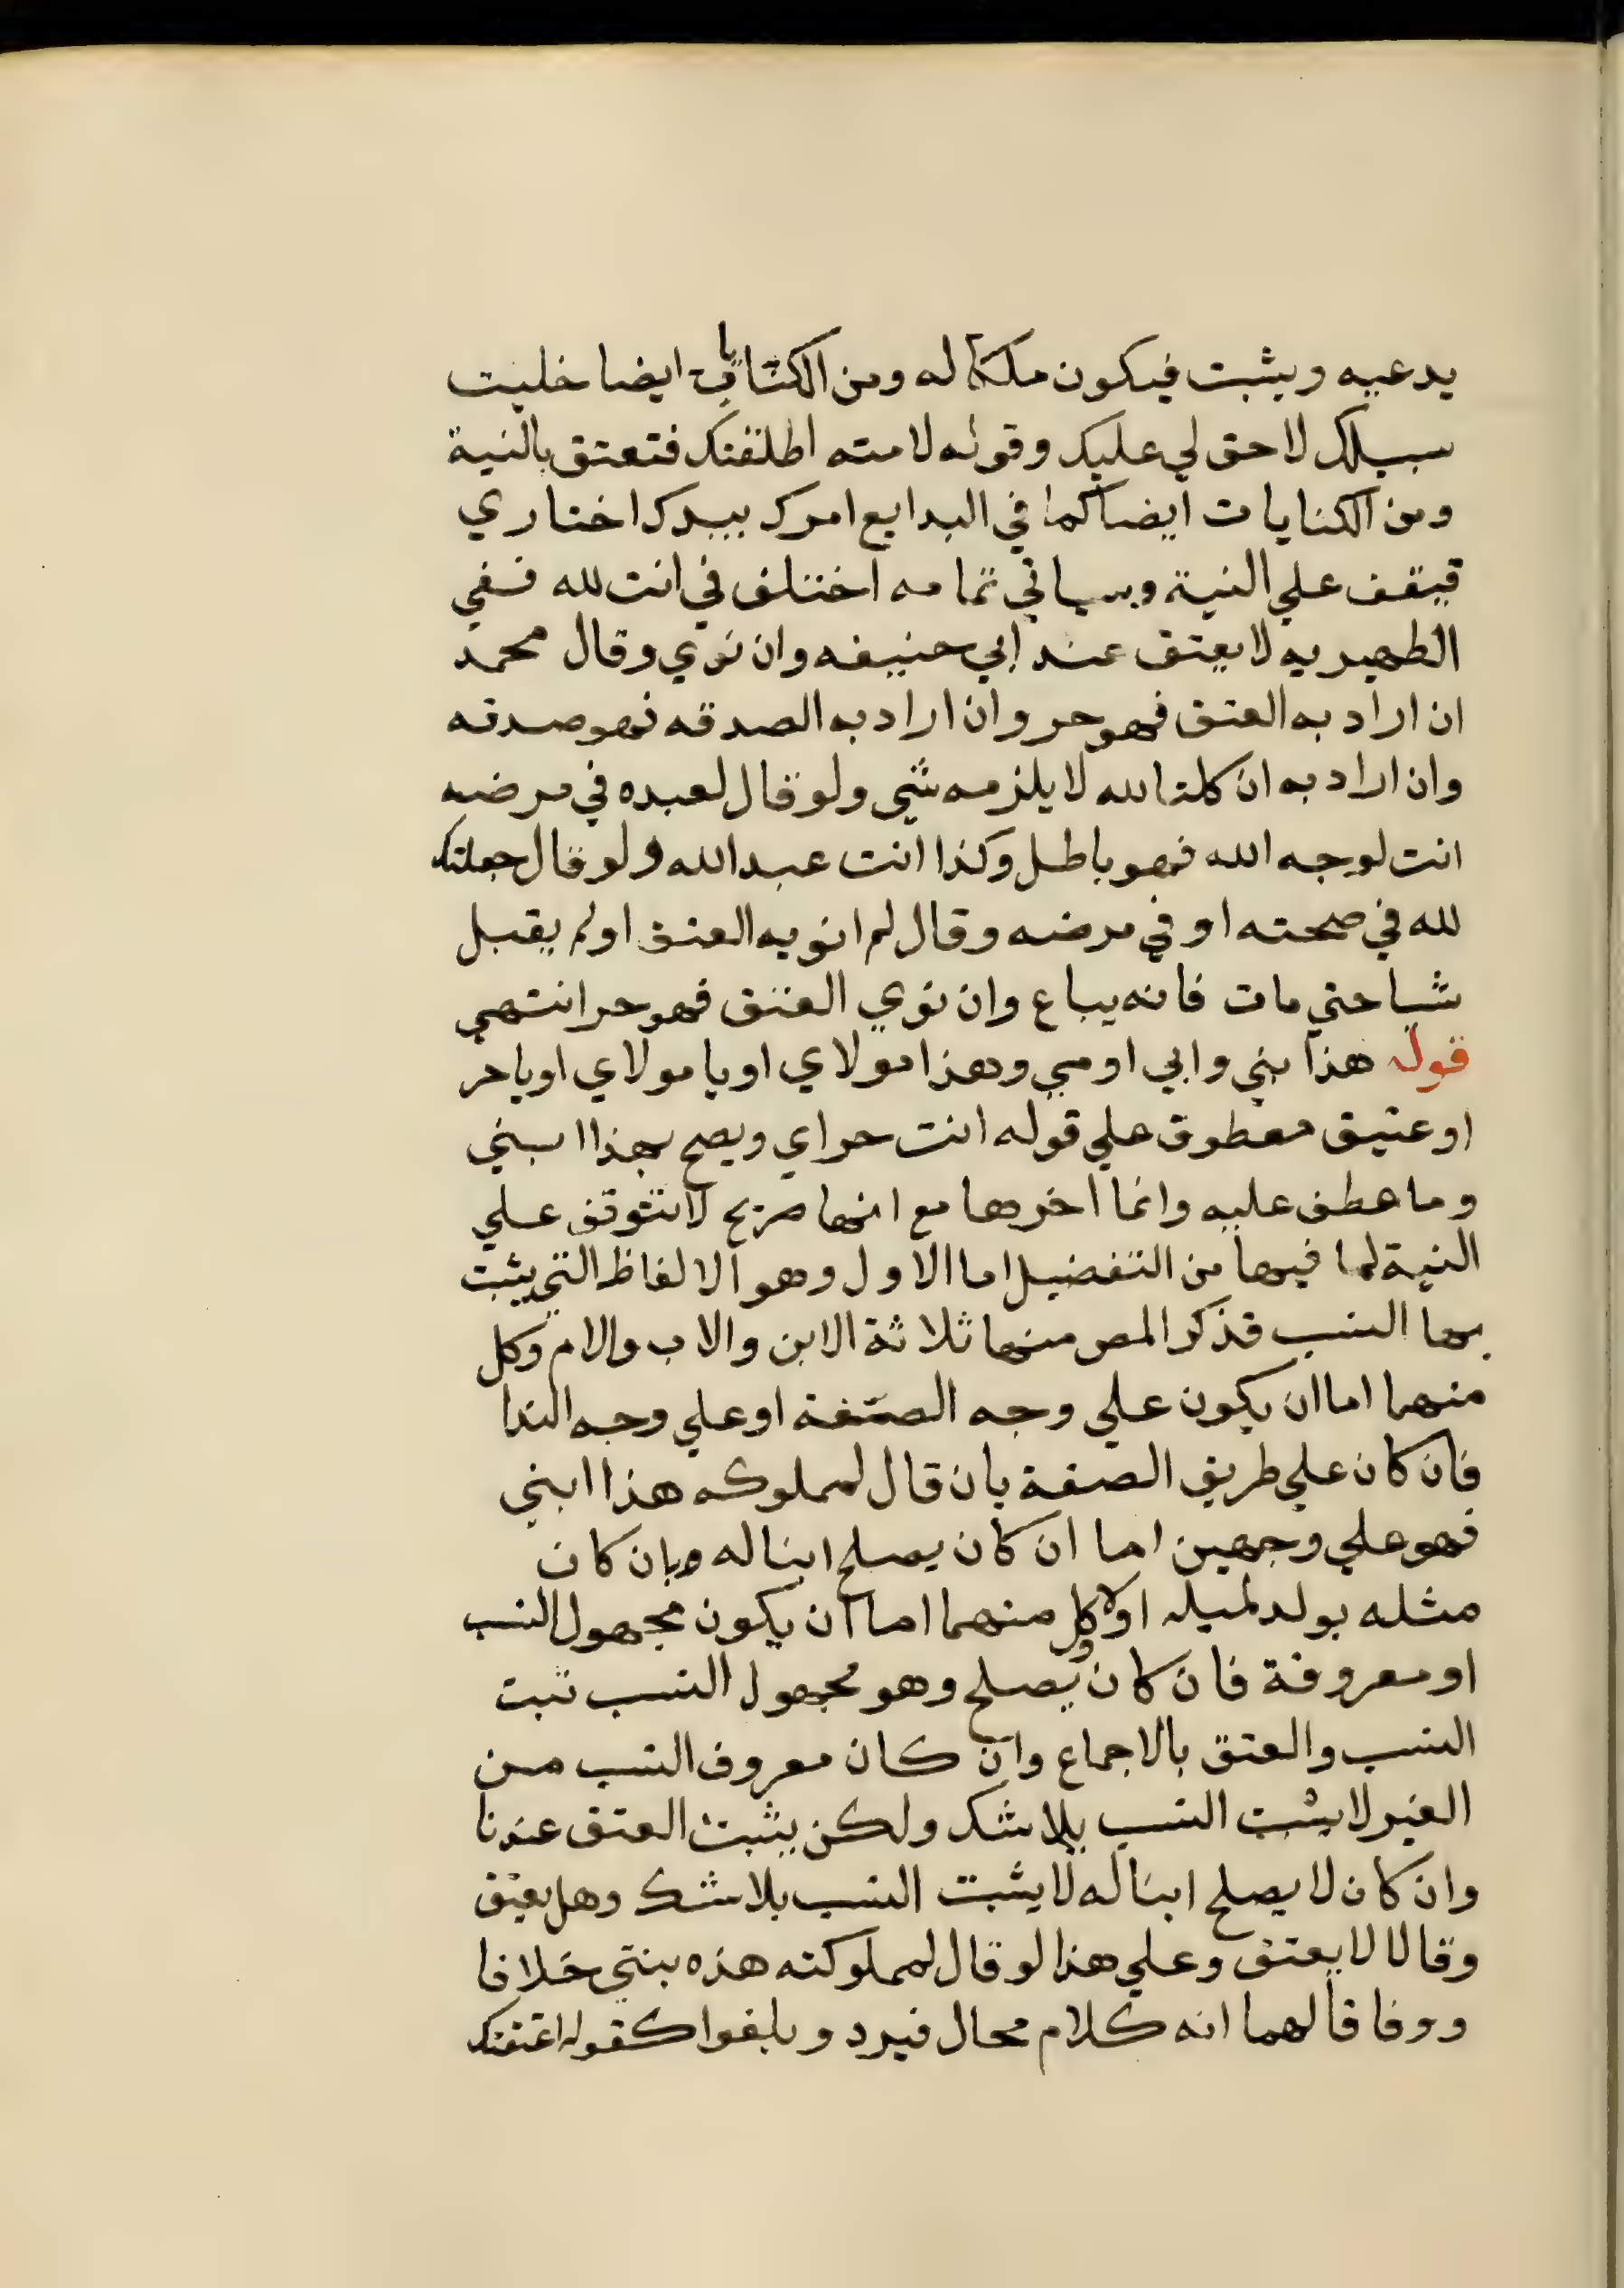 يدعيه ويثبت فيكون ملكا له ومن الكنايات ايضا خليت
سبيلك لا حق لي عليك وقوله لامته اطلقتك فتعتق بالنية
ومن الكنايات ايضا كما في البدايع امرك بيدك اختاري
فيقف علي النية وسياتي تمامه اختلف في انت لله ففي
الظهيريه لا يعتق عند ابي حنيفه وان نوي وقال محمد
ان اراد به العتق فهو حر وان اراد به الصدقه فهو صدقه
وان اراد به ان كلنا لله لا يلزمه شي ولو قال لعبده في مرضه
انت لوجه الله فهو باطل وكذا انت عبد الله ولو قال جعلتك
لله في صحته او في مرضه وقال لم انو به العتق او لم يقبل
شيا حتي مات فانه يباع وان نوي العتق فهو حر انتهي
قوله هذا بني وابي او مي وهذا مولاي او يا مولاي او يا حر
او عتيق معطوف علي قوله انت حر اي ويصح بهذا ابني
وما عطف عليه وانما اخرها مع انها صريح لا تتوقف علي
النية لما فيها من التفضيل اما الاول وهو الالفاظ التي يثبت
بها النسب فذكر المص منها ثلاثة الابن والاب والام وكل
منهما اما ان يكون علي وجه الصفة او علي وجه الندا
فان كان علي طريق الصفة بان قال لمملوكه هذا ابني
فهو علي وجهين اما ان كان يصلح ابنا له وبان كان
مثله يولد لمثله او لا وكل منهما اما ان يكون مجهول النسب
او معروفة فان كان يصلح وهو مجهول النسب ثبت
النسب والعتق بالاجماع وان كان معروف النسب من
الغير لا يثبت النسب بلا شك ولكن يثبت العتق عندنا
وان كان لا يصلح ابنا له لا يثبت النسب بلا شك وهل يعتق
وقالا لا يعتق وعلي هذا لو قال لمملوكته هذه بنتي خلافا
ووفاقا لهما انه كلام محال فيرد ويلغوا كقوله اعتقتك